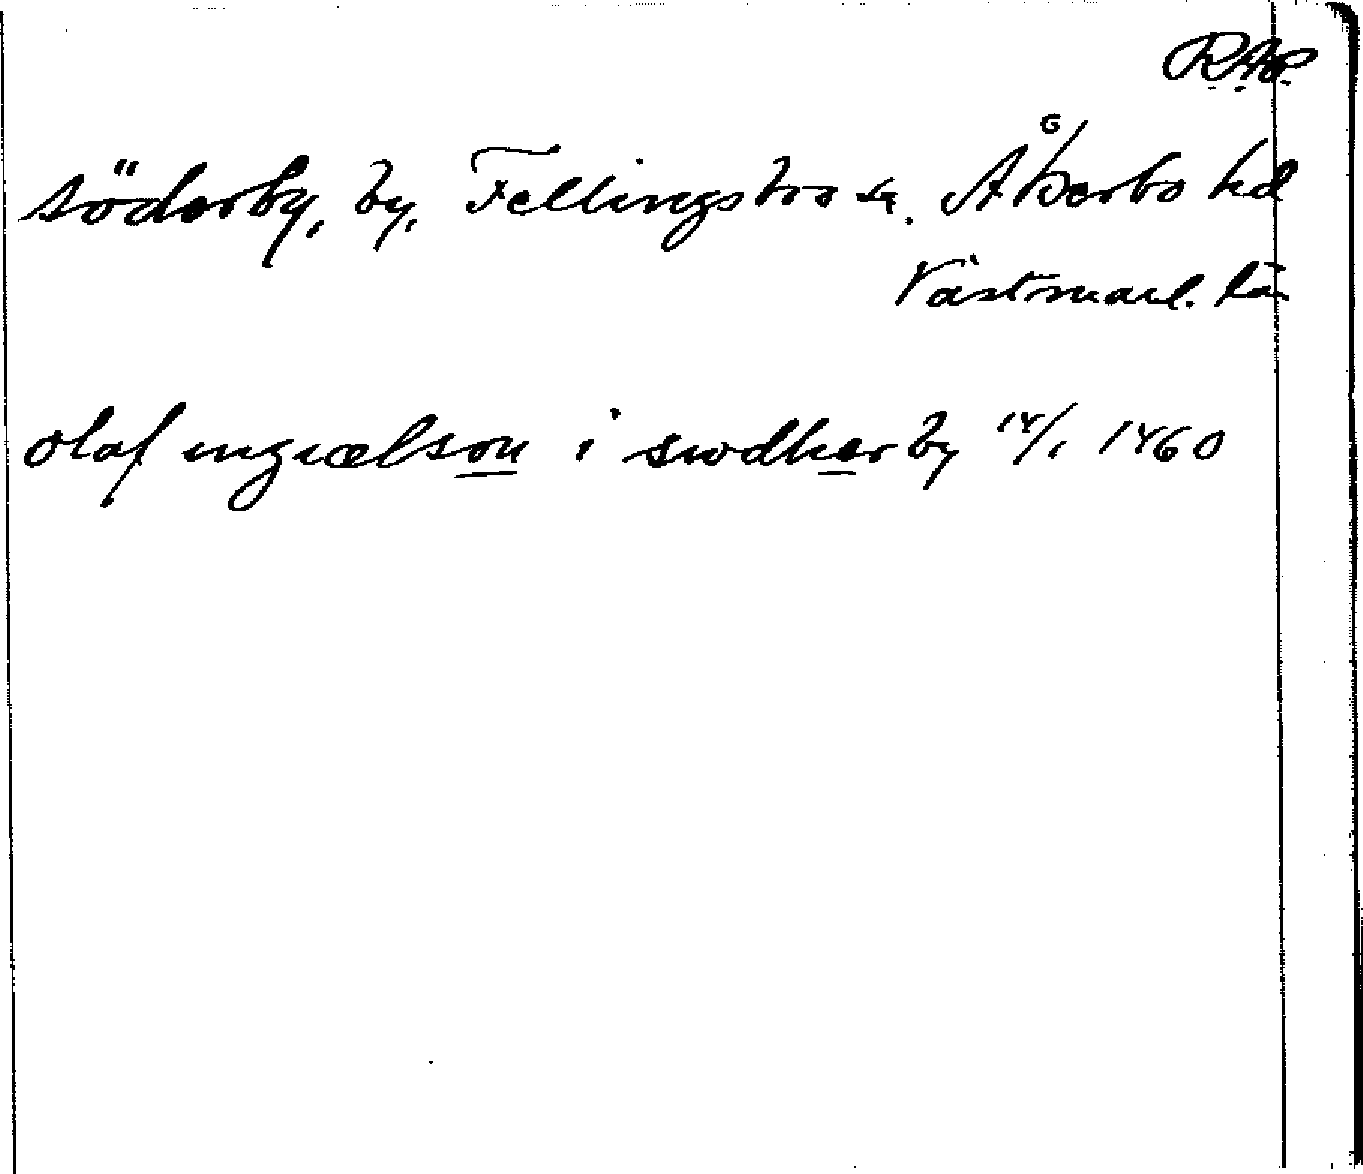 RAP.
Söderby, by, Fellingsbro sn. Åkerbo hd
Västmanl. län
olaf ingiælson i swdherby 14/1 1460